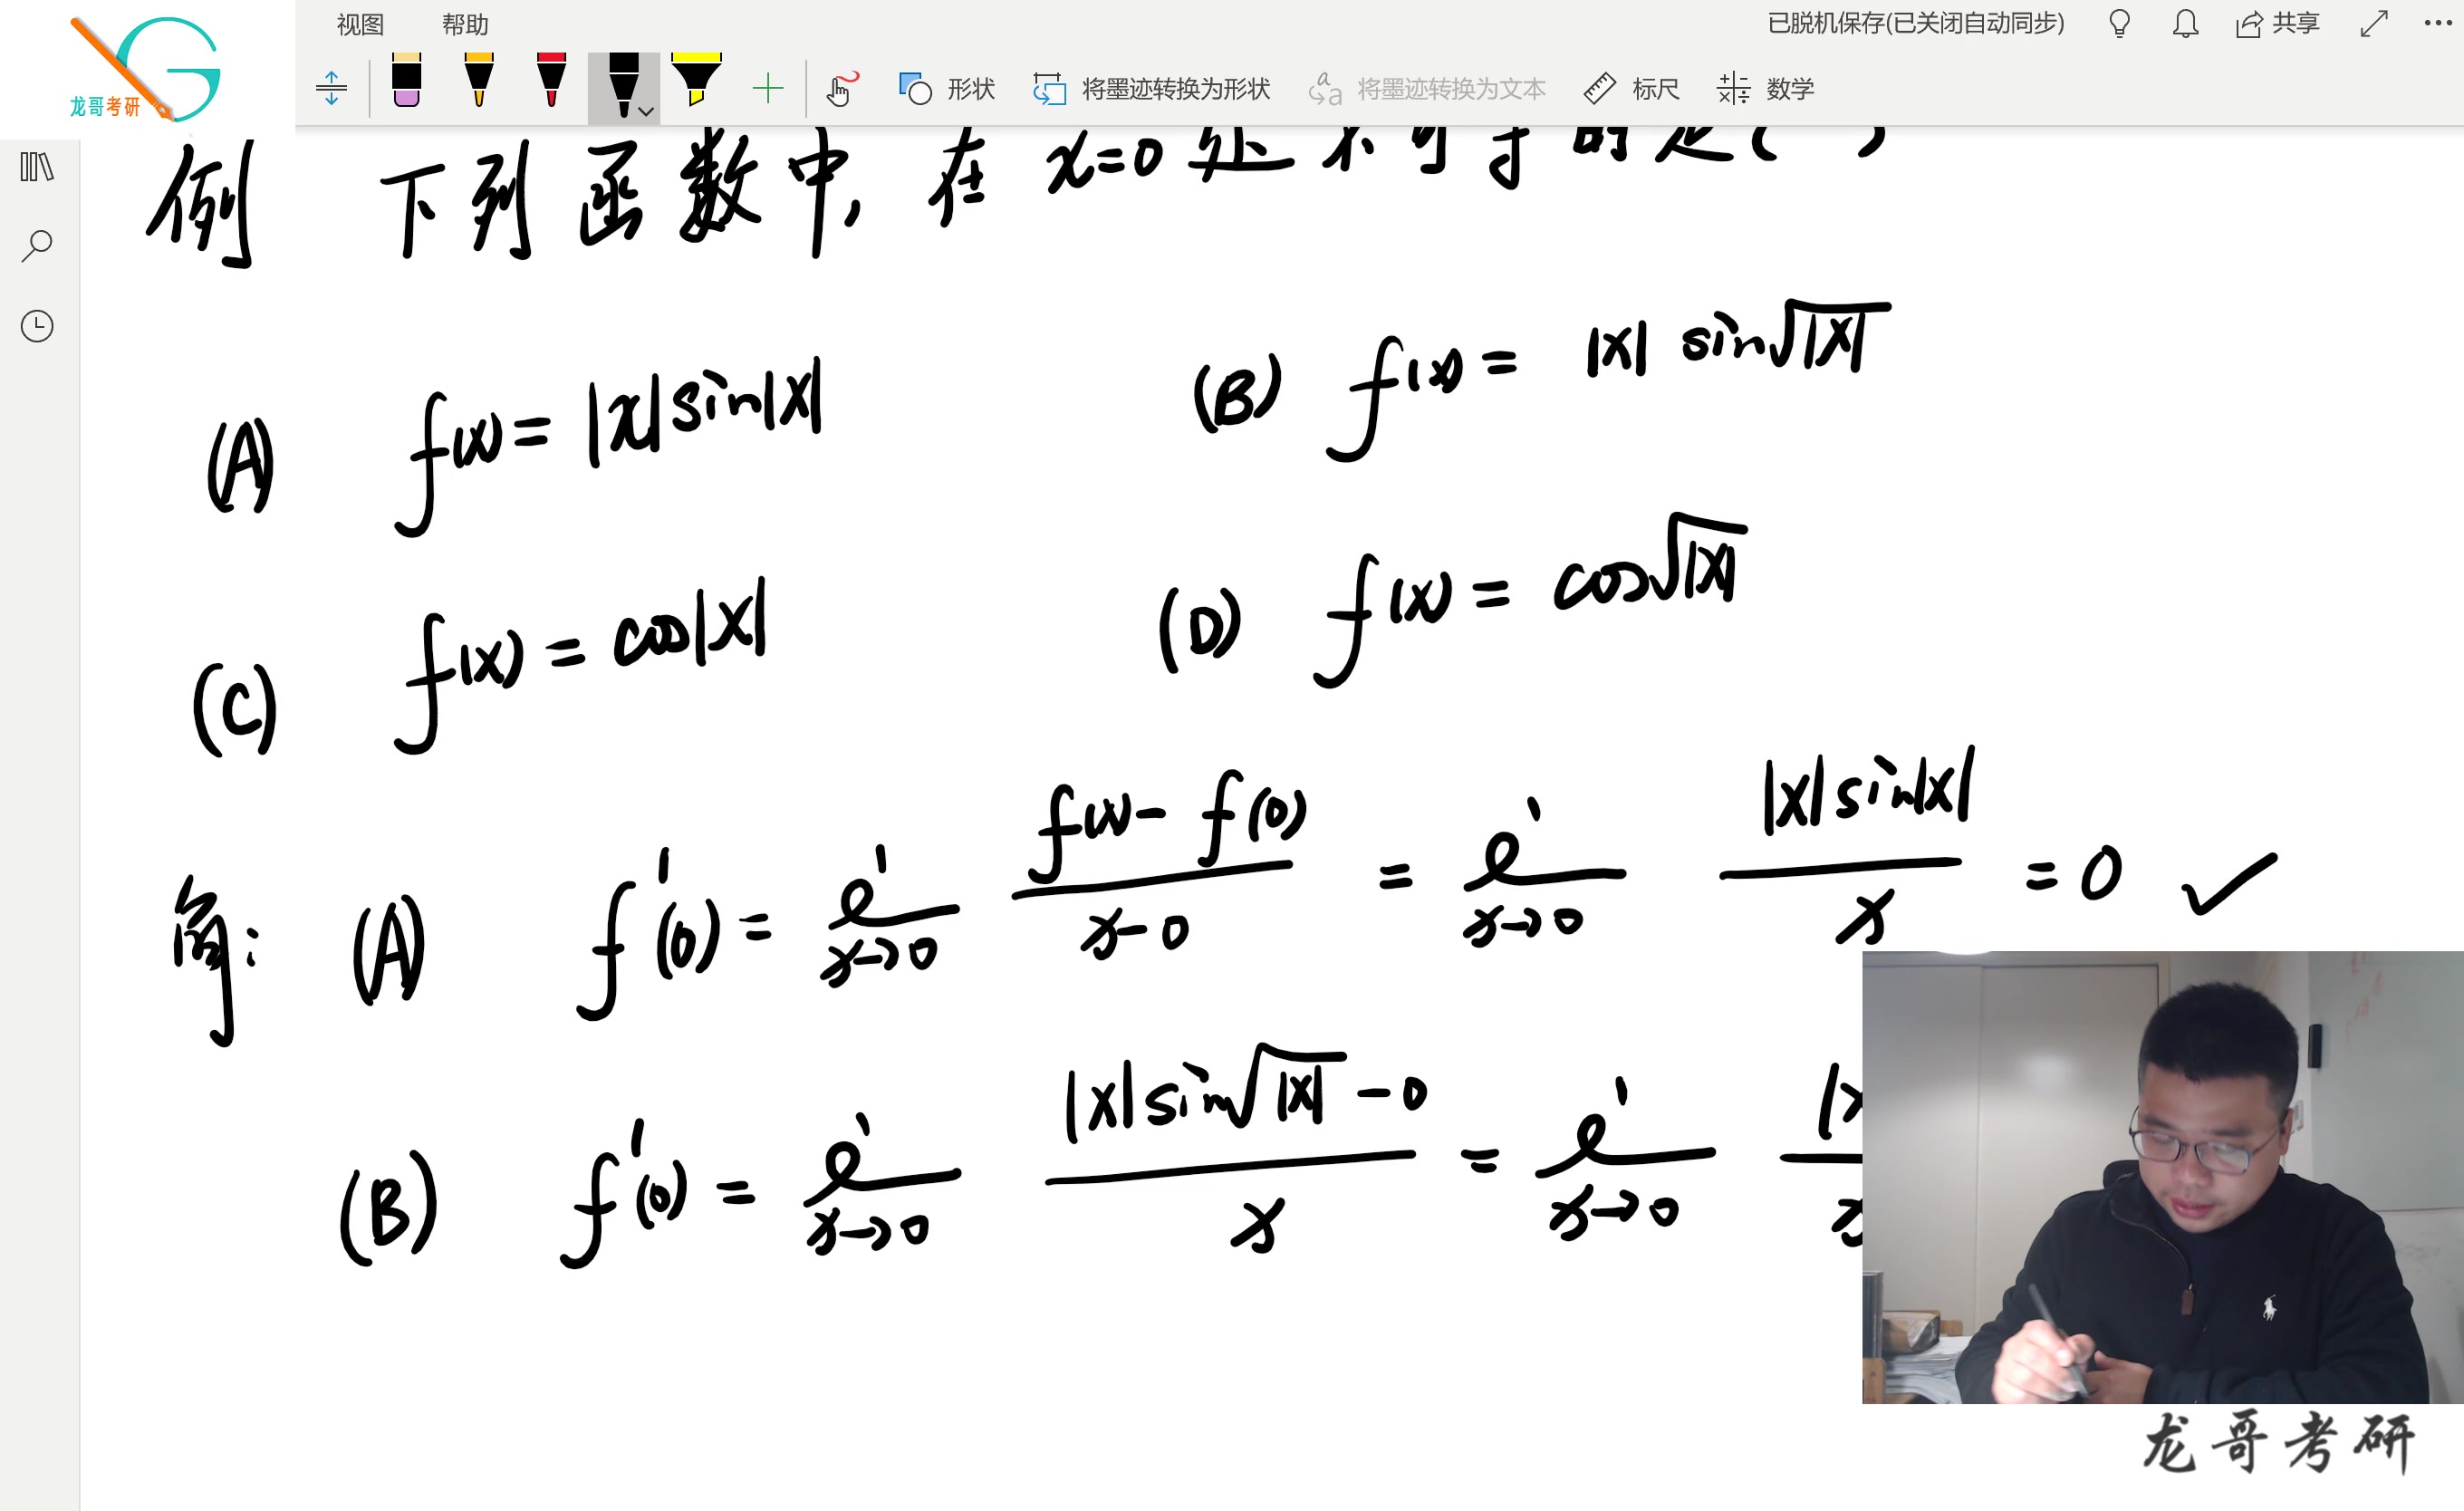 视图 帮助 已脱机保存(已关闭自动同步) 共享
龙哥考研 形状 将墨迹转换为形状 将墨迹转换为文本 标尺 数学
例 下列函数中, 在 x=0 处不可导的是( )
(A) f(x) = |x| sin|x| (B) f(x) = |x| sin√|x|
(C) f(x) = cos|x| (D) f(x) = cos√|x|
解: (A) f'(0) = lim x→0 (f(x) - f(0))/(x-0) = lim x→0 |x| sin|x| / x = 0 ✓
(B) f'(0) = lim x→0 (|x| sin√|x| - 0)/x = lim x→0
龙哥考研